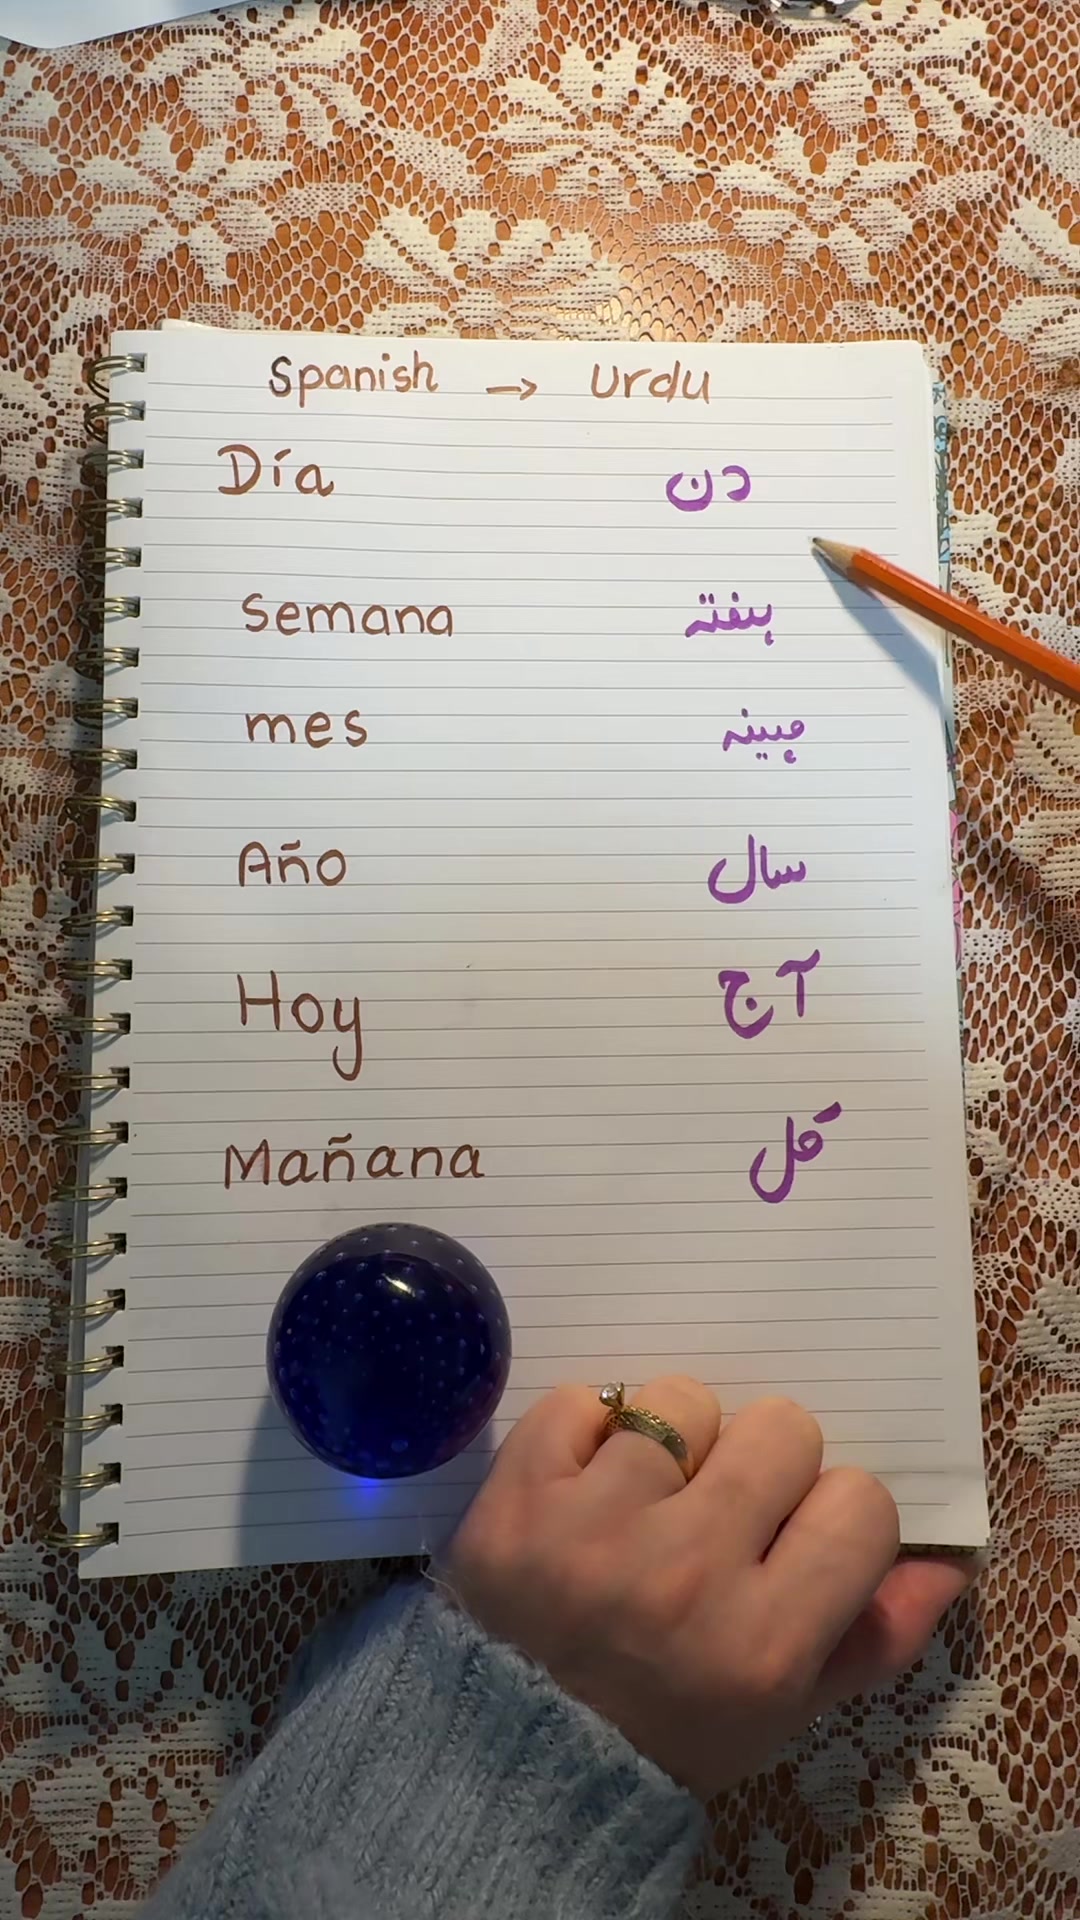 Spanish → Urdu
Día دن
Semana ہفتہ
mes مہینہ
Año سال
Hoy آج
Mañana کل